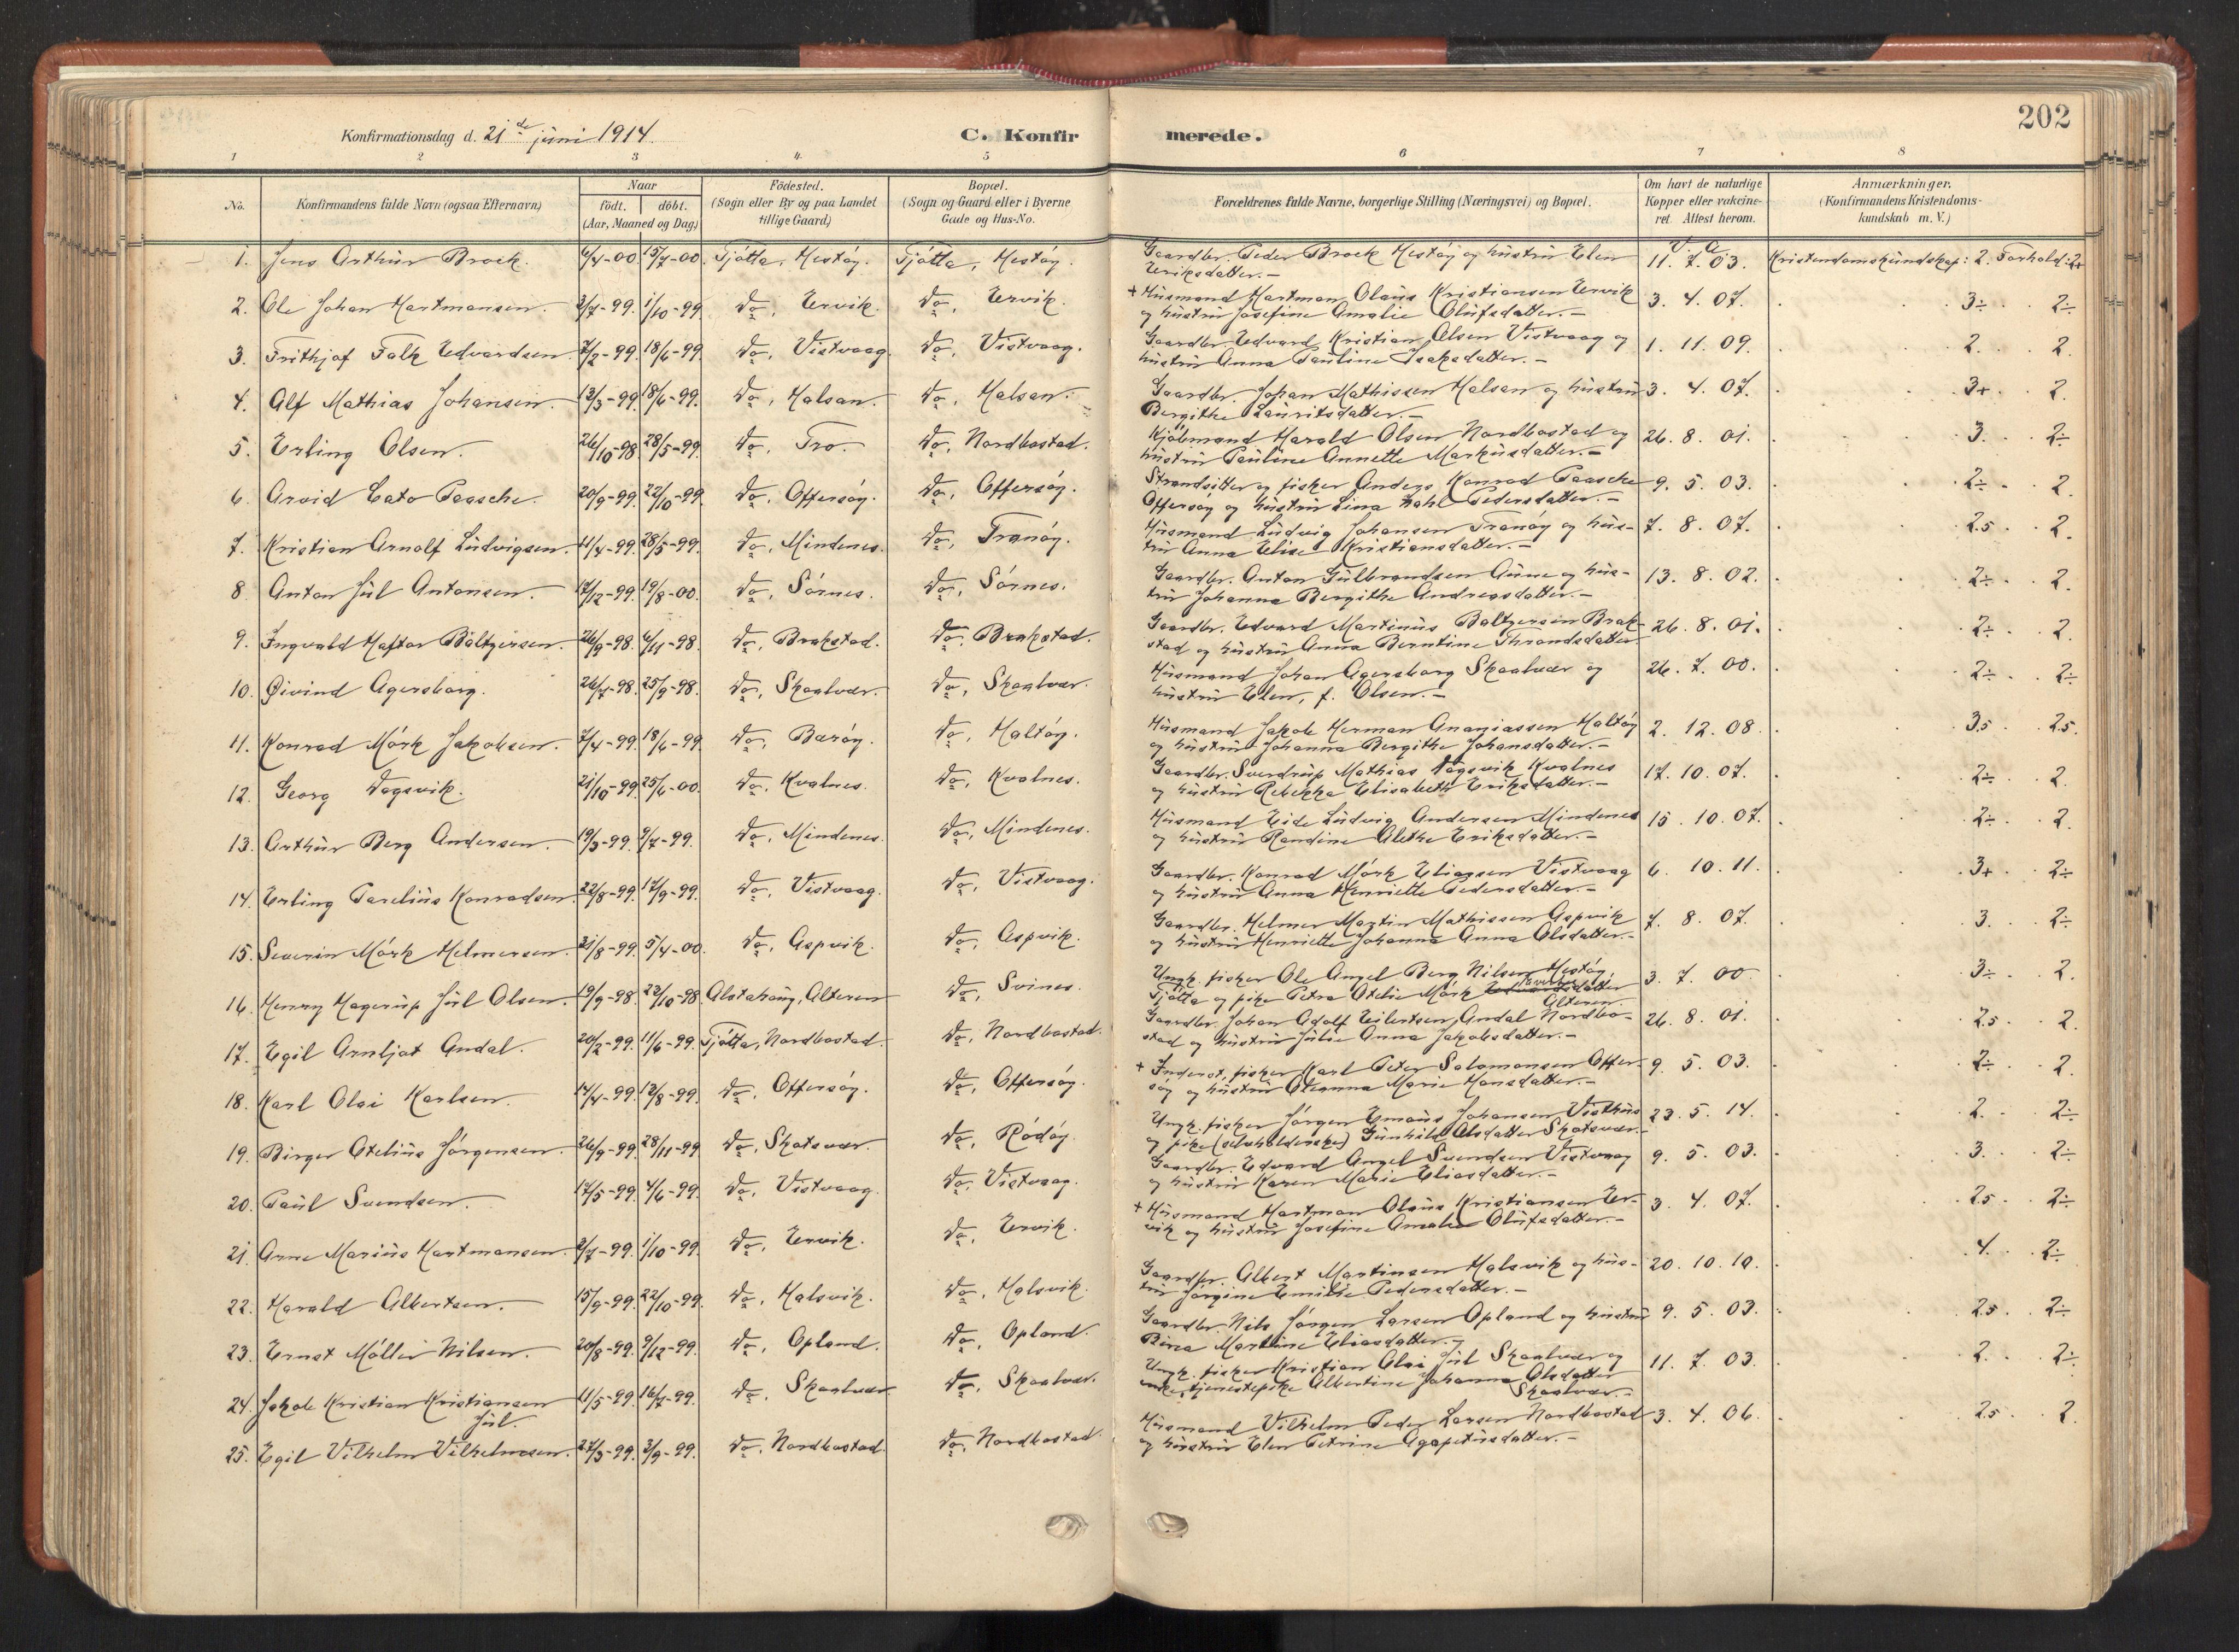 202
Konfirmationsdag d. 21de juni 1914.
C. Konfirmerede.
1 2 3 4 5 6 7 8
No.
Konfirmandens fulde Navn (ogsaa Efternavn)
Naar
födt. döbt.
(Aar, Maaned og Dag)
Födested.
(Sogn eller By og paa Landet
tillige Gaard)
Bopæl.
(Sogn og Gaard eller i Byerne
Gade og Hus-No.
Forældrenes fulde Navne, borgerlige Stilling (Næringsvei) og Bopæl.
Om havt de naturlige
Kopper eller vakcine-
ret. Attest herom.
Anmærkninger.
(Konfirmandens Kristendoms-
kundskab m. V.)
1. Jens Arthur Brock. 6/4-00 15/7-00. Tjötta, Mestöy. Tjötta, Mestöy. Gaardbr. Peder Brock Mestöy og hustru Elen 11. 7. 03. Kristendomskundskap: 2. Forhold: 2+
Eriksdatter.-
2. Ole Johan Hartmansen. 2/7-99. 1/10-99. Do, Ervik. Do, Ervik. + Husmand Hartman Olaus Kristiansen Ervik 3. 4. 07. 3÷ 2÷
og hustru Josefine Amalie Olufsdatter.-
3. Frithjof Falk Edvardsen 7/2-99. 18/6-99. Do, Vistvaag Do, Vistvaag. Gaardbr. Edvard Kristian Olsen Vistvaag og 1. 11. 09. 2. 2.
hustru Anna Pauline Isaksdatter.-
4. Alf Mathias Johansen. 12/3-99. 18/6-99. Do, Halsan. Do, Halsan. Gaardbr. Johan Mathissen Halsan og hustru 3. 4. 07. 3+ 2.
Bergithe Lauritsdatter.-
5. Erling Olsen. 26/10-98. 28/5-99. Do, Tro. Do, Nordbostad. Kjöbmand Harald Olsen Nordbostad og 26. 8. 01. 3. 2÷
hustru Pauline Annette Markusdatter.-
6. Arvid Cato Paasche. 20/9-99. 22/10-99. Do, Offersöy. Do, Offersöy. Strandsitter og fisker Anders Konrad Paasche 9. 5. 03. 2÷ 2.
Offersöy og hustru Lina Dahl Pedersdatter.-
7. Kristian Arnolf Ludvigsen. 11/4-99. 28/5-99. Do, Mindenes. Do, Tranöy. Husmand Ludvig Johansen Tranöy og hus- 7. 8. 07. 2.5 2.
tru Anna Elise Kristiansdatter.-
8. Anton Jul Antonsen. 17/12-99. 19/8-00. Do, Sörnes. Do, Sörnes. Gaardbr. Anton Gulbrandsen Aune og hus- 13. 8. 02. 2÷ 2.
tru Johanna Bergithe Andreasdatter.-
9. Ingvald Haftor Baltzersen. 26/9-98. 6/11-98. Do, Brakstad. Do, Brakstad. Gaardbr. Edvard Martinus Baltzersen Brak- 26. 8. 01. 2÷ 2.
stad og hustru Anna Berntine Throndsdatter
10. Øivind Agersborg. 26/7-98. 25/9-98. Do, Skaalvær. Do, Skaalvær. Husmand Johan Agersborg Skaalvær og 26. 7. 00. 2÷ 2÷
hustru Elen, f. Olsen.-
11. Konrad Mörk Jakobsen. 7/4-99. 18/6-99. Do, Baröy. Do, Haltöy. Husmand Jakob Herman Ananiassen Haltöy 2. 12. 08. 3.5 2.5.
og hustru Johanna Bergithe Johansdatter.-
12. Georg Dagsvik. 21/10-99. 25/6-00. Do, Kvalnes. Do, Kvalnes. Gaardbr. Sverdrup Mathias Dagsvik Kvalnes 17. 10. 07. 2÷ 2.
og hustru Rebekka Elisabeth Eriksdatter.-
13. Arthur Berg Andersen. 19/3-99. 9/7-99. Do, Mindenes. Do, Mindenes. Husmand Eide Ludvig Andersen Mindenes 15. 10. 07. 2÷ 2.
og hustru Randine Alethe Eriksdatter.-
14. Erling Parelius Konradsen. 22/8-99. 17/9-99. Do, Vistvaag. Do, Vistvaag. Gaardbr. Konrad Mörk Eliassen Vistvaag 6. 10. 11. 3+ 2÷
og hustru Anna Henriette Pedersdatter.-
15. Severin Mörk Helmersen. 21/8-99. 5/4-00. Do, Aspvik. Do, Aspvik. Gaardbr. Helmer Martin Mathissen Aspvik 7. 8. 07. 3. 2÷
og hustru Henriette Johanna Anna Olsdatter.-
16. Henry Hagerup Jul Olsen. 19/9-98. 22/10-98. Alstahaug, Alteren Do, Svines. Ungk. fisker Ole Angel Berg Nilsen Mestöy, 3. 7. 00. 3÷ 2.
Tjötta og pike Petra Otelie Mörk Edvardsdatter
Alteren.
17. Egil Arnljot Andal. 20/2-99. 11/6-99. Tjötta, Nordbostad. Do, Nordbostad. Gaardbr. Johan Adolf Eilertsen Andal Nordbo- 26. 8. 01. 2.5 2.
stad og hustru Julie Anna Jakobsdatter.-
18. Karl Olai Karlsen. 14/4-99. 12/8-99. Do, Offersöy. Do, Offersöy. + Inderst, fisker Karl Peter Salamonsen Offer- 9. 5. 03. 2÷ 2.
söy og hustru Oleanna Marie Hansdatter.-
19. Birger Otelius Jörgensen. 26/9-99. 28/11-99 Do, Skotsvær. Do, Rödöy. Ungk. fisker Jörgen Emaus Johansen Visthus 23. 5. 14. 2. 2÷
og pike (selvholderske) Gunhild Olsdatter Skotsvær.-
20. Paul Svendsen. 17/5-99. 4/6-99. Do, Vistvaag. Do, Vistvaag. Gaardbr. Edvard Angel Svendsen Vistvaag 9. 5. 03. 3. 2÷
og hustru Karen Marie Eliasdatter.-
21. Arne Marius Hartmansen. 2/7-99. 1/10-99. Do, Ervik. Do, Ervik. + Husmand Hartman Olaus Kristiansen Er- 3. 4. 07. 2.5 2÷
vik og hustru Josefine Amalie Olufsdatter.-
22. Harald Albertsen. 15/9-99. 22/10-99. Do, Halsvik. Do, Halsvik. Gaardbr. Albert Martinsen Halsvik og hus- 20. 10. 10. 4. 2÷
tru Jörgine Emilie Pedersdatter.-
23. Ernst Möller Nilsen. 20/8-99. 9/12-99. Do, Opland. Do, Opland. Gaardbr. Nils Jörgen Larsen Opland og hustru 9. 5. 03. 2.5 2÷
Bina Martine Eliasdatter.-
24. Jakob Kristian Kristiansen 11/5-99. 16/7-99. Do, Skaalvær Do, Skaalvær. Ungk. fisker Kristian Olai Jul Skaalvær og 11. 7. 03. 2. 2÷
Jul. enke, tjenestepike Albertine Johanna Olsdatter
Skaalvær.-
25. Egil Vilhelm Vilhelmsen. 27/3-99. 3/9-99. Do, Nordbostad. Do, Nordbostad. Husmand Vilhelm Peder Larsen Nordbostad 3. 4. 06. 2.5 2.
og hustru Elen Petrine Agapetusdatter.-